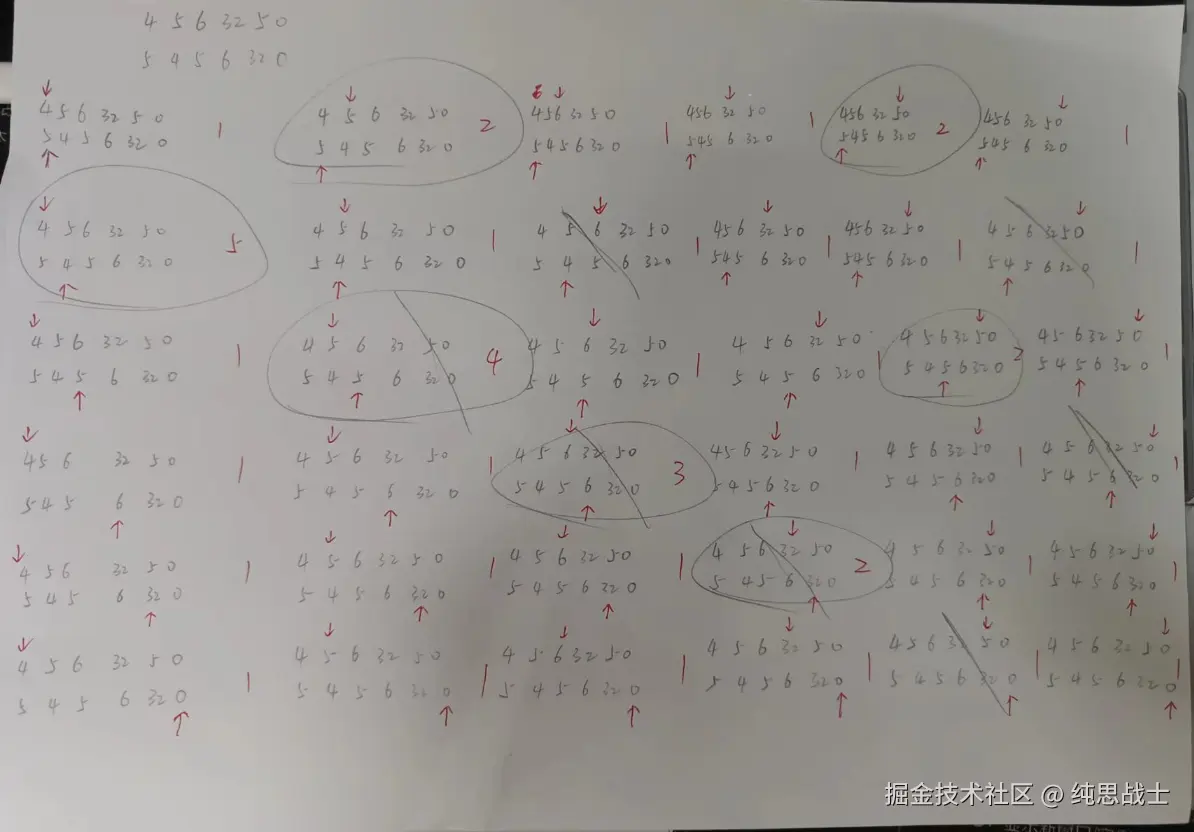 4 5 6 32 5 0
5 4 5 6 32 0
4 5 6 32 5 0
5 4 5 6 32 0
1
4 5 6 32 5 0
5 4 5 6 32 0
2
4 5 6 32 5 0
5 4 5 6 32 0
1
4 5 6 32 5 0
5 4 5 6 32 0
1
4 5 6 32 5 0
5 4 5 6 32 0
2
4 5 6 32 5 0
5 4 5 6 32 0
1
4 5 6 32 5 0
5 4 5 6 32 0
5
4 5 6 32 5 0
5 4 5 6 32 0
1
4 5 6 32 5 0
5 4 5 6 32 0
1
4 5 6 32 5 0
5 4 5 6 32 0
1
4 5 6 32 5 0
5 4 5 6 32 0
1
4 5 6 32 5 0
5 4 5 6 32 0
1
4 5 6 32 5 0
5 4 5 6 32 0
1
4 5 6 32 5 0
5 4 5 6 32 0
4
4 5 6 32 5 0
5 4 5 6 32 0
1
4 5 6 32 5 0
5 4 5 6 32 0
1
4 5 6 32 5 0
5 4 5 6 32 0
2
4 5 6 32 5 0
5 4 5 6 32 0
1
4 5 6 32 5 0
5 4 5 6 32 0
1
4 5 6 32 5 0
5 4 5 6 32 0
1
4 5 6 32 5 0
5 4 5 6 32 0
3
4 5 6 32 5 0
5 4 5 6 32 0
1
4 5 6 32 5 0
5 4 5 6 32 0
1
4 5 6 32 5 0
5 4 5 6 32 0
1
4 5 6 32 5 0
5 4 5 6 32 0
1
4 5 6 32 5 0
5 4 5 6 32 0
1
4 5 6 32 5 0
5 4 5 6 32 0
1
4 5 6 32 5 0
5 4 5 6 32 0
2
4 5 6 32 5 0
5 4 5 6 32 0
1
4 5 6 32 5 0
5 4 5 6 32 0
1
4 5 6 32 5 0
5 4 5 6 32 0
1
4 5 6 32 5 0
5 4 5 6 32 0
1
4 5 6 32 5 0
5 4 5 6 32 0
1
4 5 6 32 5 0
5 4 5 6 32 0
1
4 5 6 32 5 0
5 4 5 6 32 0
1
4 5 6 32 5 0
5 4 5 6 32 0
1
掘金技术社区 @ 纯思战士